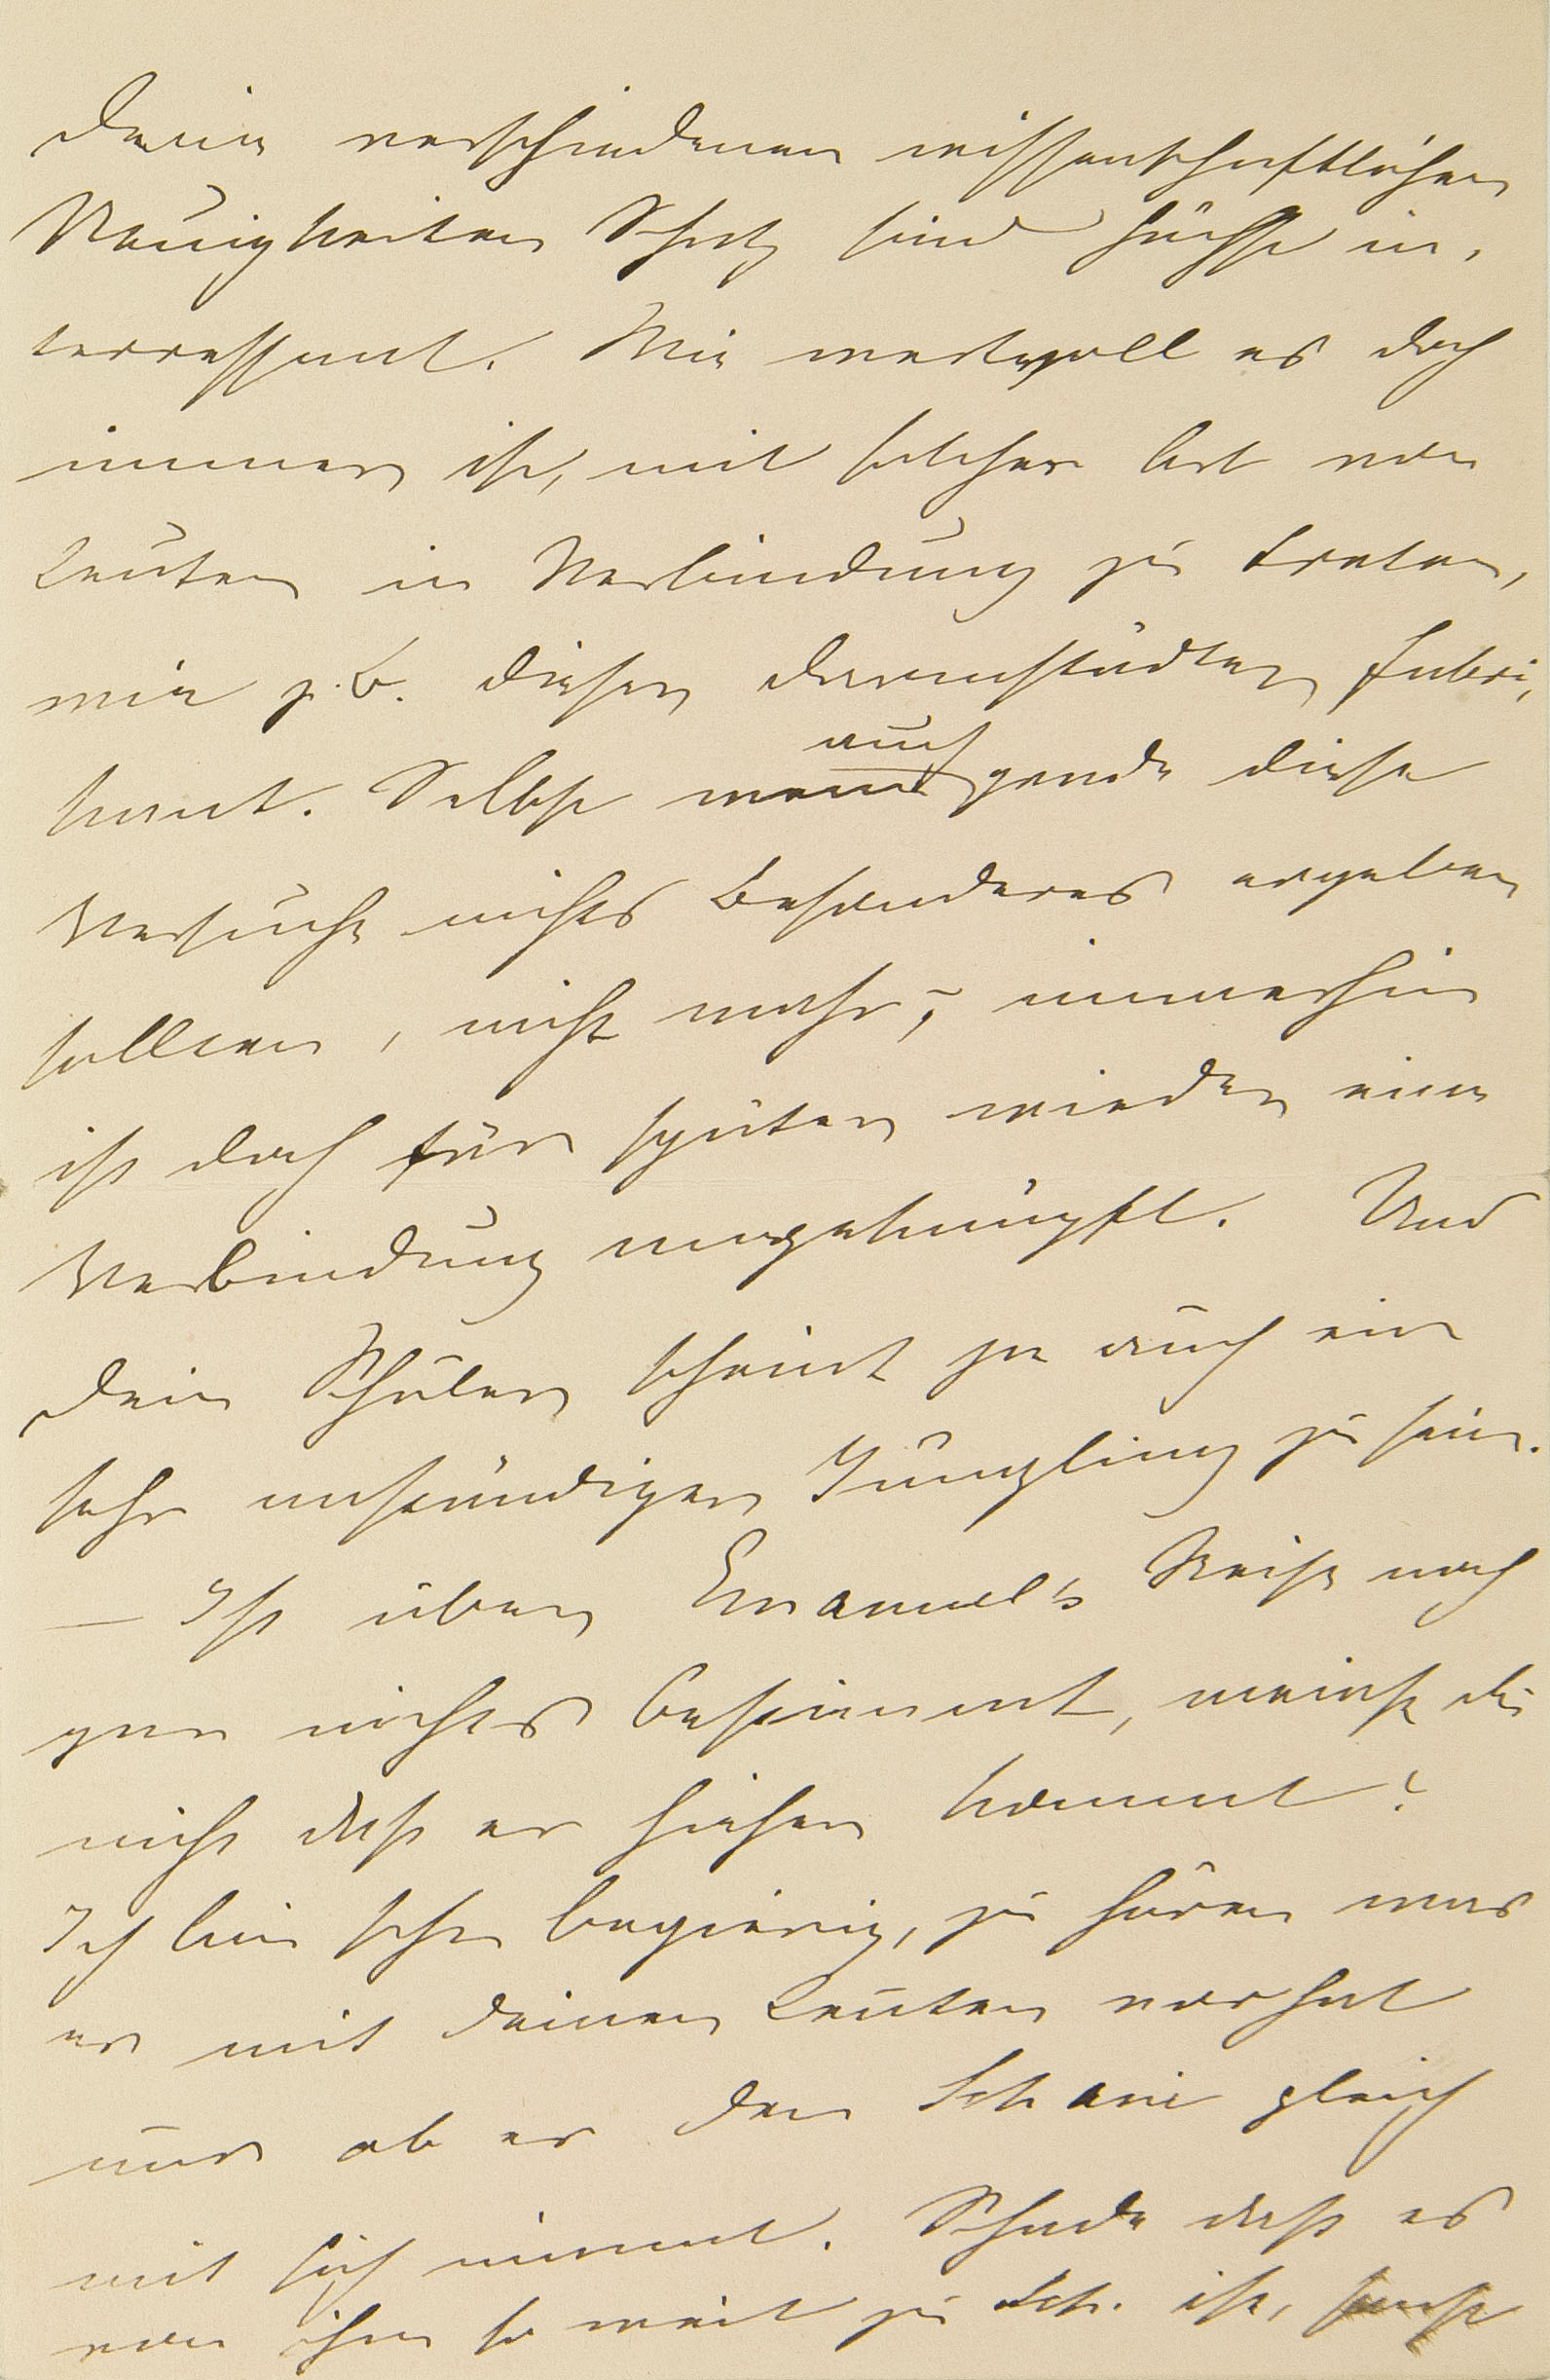 Deine verschiedenen wissenschaftlichen
Neuigkeiten Schatz sind höchst in-
terressant. Wie wertvoll es doch
immer ist, mit solcher Art von
Leuten in Verbindung zu treten,
wie z. B. dieser Darmstädter Fabri-
kant. Selbst wenn auch gerade diese
Versuche nichts Besonderes ergeben
sollten, nicht wahr, immerhin
ist doch für später wieder eine
Verbindung angeknüpft. Und
Dein Schüler scheint ja auch ein
sehr anständiger Jüngling zu sein.
— Ist über Emanuel's Reise noch
gar nichts bestimmt, meinst du
nicht daß er hieher kommt?
Ich bin sehr begierig, zu hören was
er mit deinen Leuten vorhat
und ob er den Schani gleich
mit sich nimmt. Schade daß es
von ihm so weit zu Sch. ist, sonst